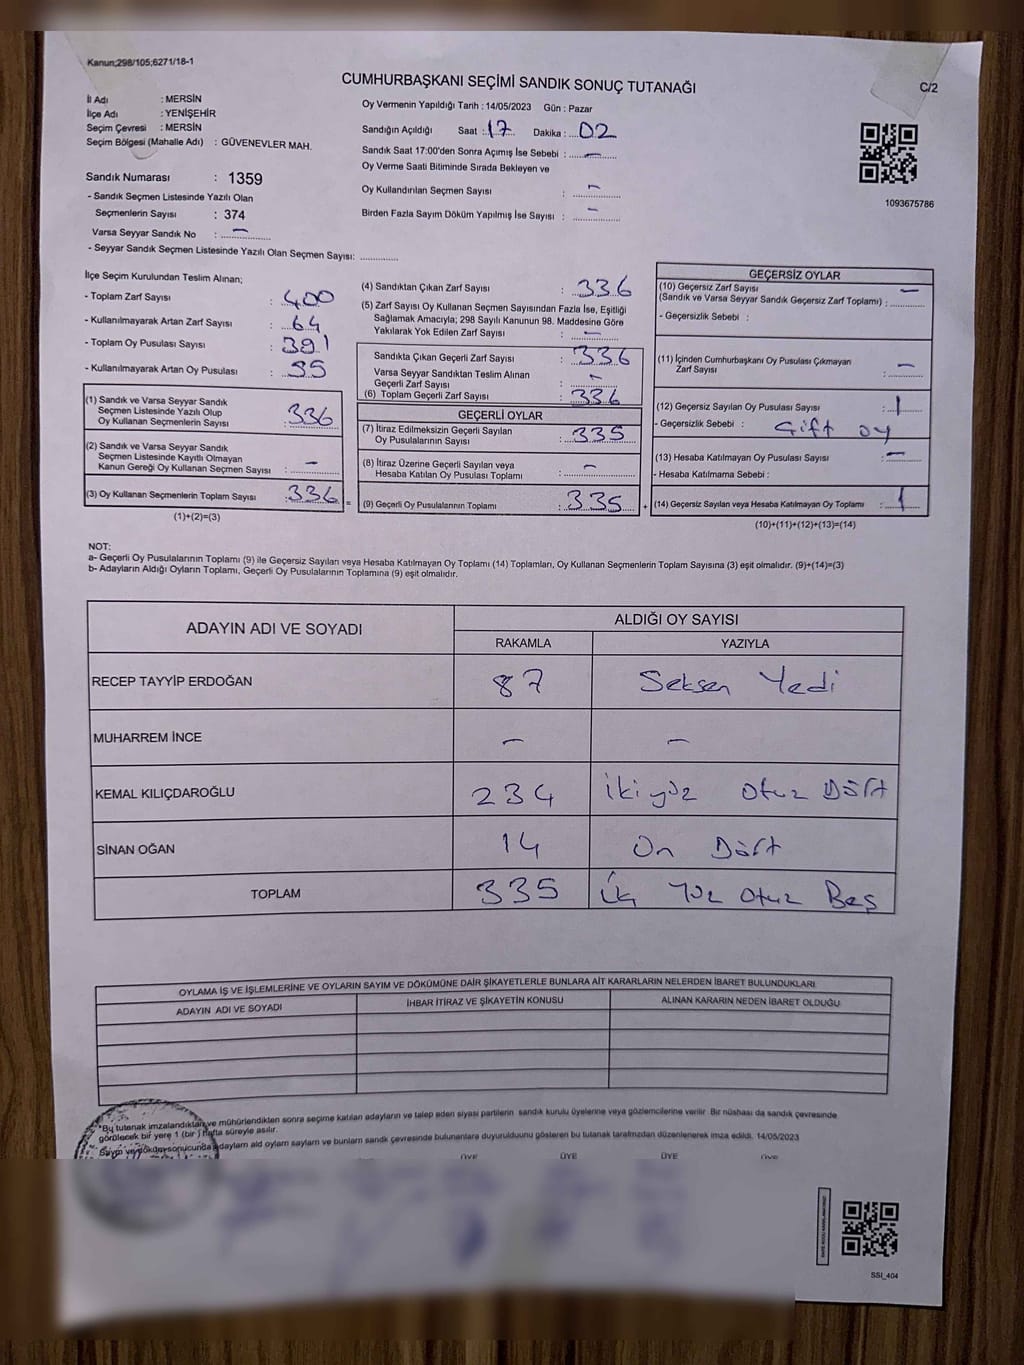 Kanun;298/105;6271/18-1
CUMHURBAŞKANI SEÇİMİ SANDIK SONUÇ TUTANAĞI
C/2
İl Adı : MERSİN
İlçe Adı : YENİŞEHİR
Seçim Çevresi : MERSİN
Seçim Bölgesi (Mahalle Adı) : GÜVENEVLER MAH.
Oy Vermenin Yapıldığı Tarih : 14/05/2023 Gün : Pazar
Sandığın Açıldığı Saat : 17 Dakika : 02
Sandık Saat 17:00'den Sonra Açımış İse Sebebi : —
Oy Verme Saati Bitiminde Sırada Bekleyen ve
Oy Kullandırılan Seçmen Sayısı : —
Birden Fazla Sayım Döküm Yapılmış İse Sayısı : —
1093675786
Sandık Numarası : 1359
- Sandık Seçmen Listesinde Yazılı Olan
Seçmenlerin Sayısı : 374
Varsa Seyyar Sandık No : —
- Seyyar Sandık Seçmen Listesinde Yazılı Olan Seçmen Sayısı: ..............
İlçe Seçim Kurulundan Teslim Alınan;
- Toplam Zarf Sayısı : 400
- Kullanılmayarak Artan Zarf Sayısı : 64
- Toplam Oy Pusulası Sayısı : 391
- Kullanılmayarak Artan Oy Pusulası : 55
(1) Sandık ve Varsa Seyyar Sandık
Seçmen Listesinde Yazılı Olup
Oy Kullanan Seçmenlerin Sayısı : 336
(2) Sandık ve Varsa Seyyar Sandık
Seçmen Listesinde Kayıtlı Olmayan
Kanun Gereği Oy Kullanan Seçmen Sayısı : —
(3) Oy Kullanan Seçmenlerin Toplam Sayısı : 336 =
(1)+(2)=(3)
(4) Sandıktan Çıkan Zarf Sayısı : 336
(5) Zarf Sayısı Oy Kullanan Seçmen Sayısından Fazla İse, Eşitliği
Sağlamak Amacıyla; 298 Sayılı Kanunun 98. Maddesine Göre
Yakılarak Yok Edilen Zarf Sayısı : —
Sandıkta Çıkan Geçerli Zarf Sayısı : 336
Varsa Seyyar Sandıktan Teslim Alınan
Geçerli Zarf Sayısı : —
(6) Toplam Geçerli Zarf Sayısı : 336
GEÇERLİ OYLAR
(7) İtiraz Edilmeksizin Geçerli Sayılan
Oy Pusulalarının Sayısı : 335
(8) İtiraz Üzerine Geçerli Sayılan veya
Hesaba Katılan Oy Pusulası Toplamı : —
(9) Geçerli Oy Pusulalarının Toplamı : 335 +
GEÇERSİZ OYLAR
(10) Geçersiz Zarf Sayısı —
(Sandık ve Varsa Seyyar Sandık Geçersiz Zarf Toplamı) :
- Geçersizlik Sebebi :
(11) İçinden Cumhurbaşkanı Oy Pusulası Çıkmayan
Zarf Sayısı : —
(12) Geçersiz Sayılan Oy Pusulası Sayısı : 1
- Geçersizlik Sebebi : Çift oy
(13) Hesaba Katılmayan Oy Pusulası Sayısı : —
- Hesaba Katılmama Sebebi :
(14) Geçersiz Sayılan veya Hesaba Katılmayan Oy Toplamı : 1
(10)+(11)+(12)+(13)=(14)
NOT:
a- Geçerli Oy Pusulalarının Toplamı (9) ile Geçersiz Sayılan veya Hesaba Katılmayan Oy Toplamı (14) Toplamları, Oy Kullanan Seçmenlerin Toplam Sayısına (3) eşit olmalıdır. (9)+(14)=(3)
b- Adayların Aldığı Oyların Toplamı, Geçerli Oy Pusulalarının Toplamına (9) eşit olmalıdır.
ADAYIN ADI VE SOYADI
ALDIĞI OY SAYISI
RAKAMLA YAZIYLA
RECEP TAYYİP ERDOĞAN 87 Seksen Yedi
MUHARREM İNCE — —
KEMAL KILIÇDAROĞLU 234 İki yüz otuz Dört
SİNAN OĞAN 14 On Dört
TOPLAM 335 Üç Yüz Otuz Beş
OYLAMA İŞ VE İŞLEMLERİNE VE OYLARIN SAYIM VE DÖKÜMÜNE DAİR ŞİKAYETLERLE BUNLARA AİT KARARLARIN NELERDEN İBARET BULUNDUKLARI
ADAYIN ADI VE SOYADI İHBAR İTİRAZ VE ŞİKAYETİN KONUSU ALINAN KARARIN NEDEN İBARET OLDUĞU
*Bu tutanak imzalandıktan ve mühürlendikten sonra seçime katılan adayların ve talep eden siyasi partilerin sandık kurulu üyelerine veya gözlemcilerine verilir. Bir nüshası da sandık çevresinde
görülecek bir yere 1 (bir) hafta süreyle asılır.
adayların ald oyların sayların ve bunların sandık çevresinde bulunanlara duyurulduunu gösteren bu tutanak tarafmzdan düzenlenerek imza edildi. 14/05/2023
ÜYE ÜYE ÜYE ÜYE
SSI_404